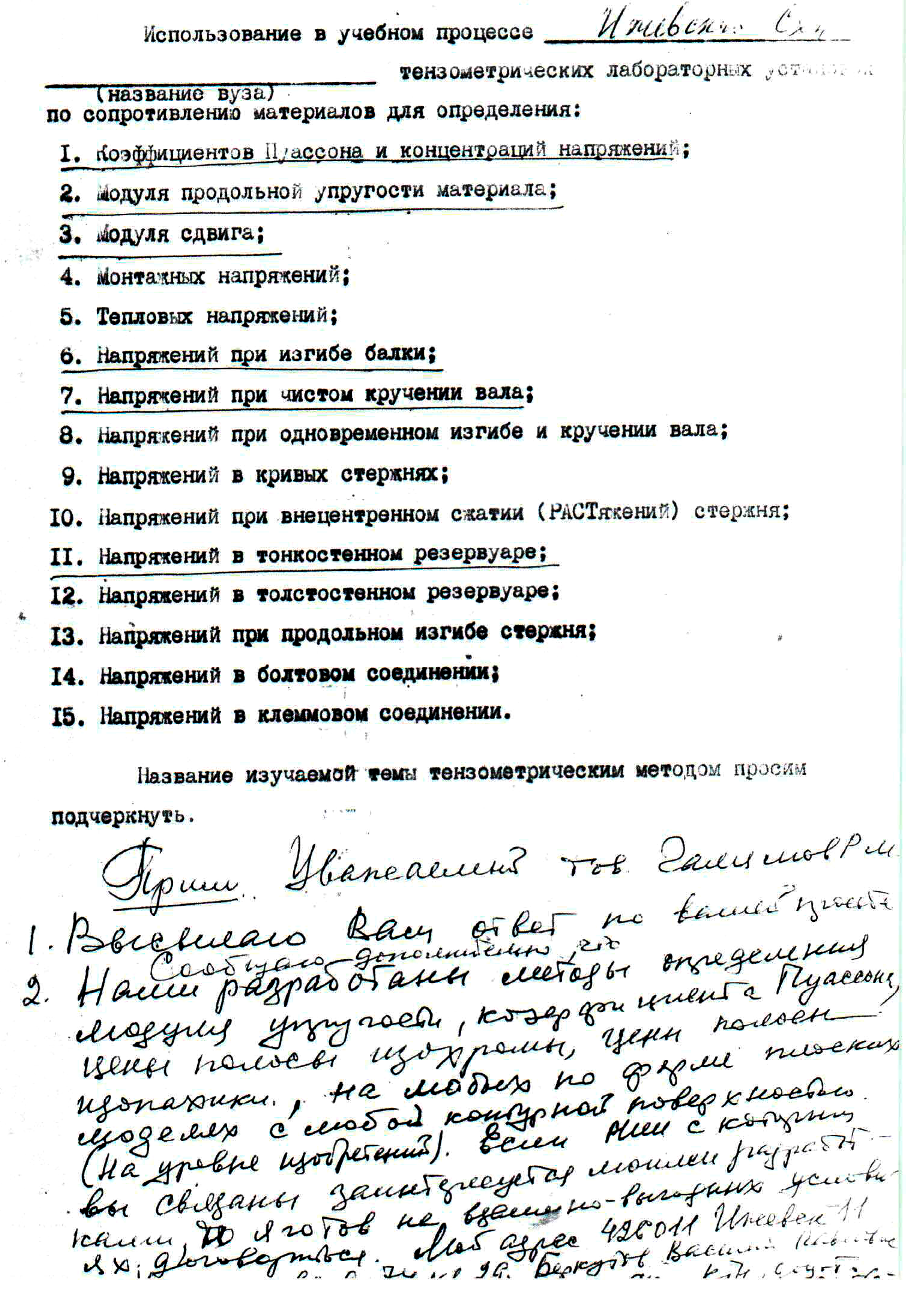 Использование в учебном процессе Ижевский Схи
тензометрических лабораторных установок
(название вуза)
по сопротивлению материалов для определения:
I. Коэффициентов Пуассона и концентраций напряжений;
2. Модуля продольной упругости материала;
3. Модуля сдвига;
4. Монтажных напряжений;
5. Тепловых напряжений;
6. Напряжений при изгибе балки;
7. Напряжений при чистом кручении вала;
8. Напряжений при одновременном изгибе и кручении вала;
9. Напряжений в кривых стержнях;
IO. Напряжений при внецентренном сжатии (РАСТяжений) стержня;
II. Напряжений в тонкостенном резервуаре;
I2. Напряжений в толстостенном резервуаре;
I3. Напряжений при продольном изгибе стержня;
I4. Напряжений в болтовом соединении;
I5. Напряжений в клеммовом соединении.
Название изучаемой темы тензометрическим методом просим
подчеркнуть.
Прим. Уважаемый тов Галимов Р.М.
1. Высылаю Вам ответ по вашей
Сообщаю дополнительно, что
2. Нами разработаны методы определения
модуля упругости, коэффициента Пуассона,
цены полосы изохромы, цены полосы
изопахики, на любых по форме плоских
моделях с любой контурной поверхностью.
(на уровне изобретений). Если НИИ с которым
вы связаны заинтересуется моими разработ-
ками, то я готов на взаимно-выгодных услови-
ях договориться. Мой адрес 426011 Ижевск 11
Беркутов Василий